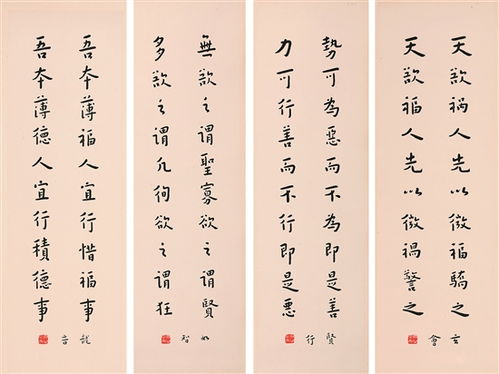 天欲禍人先以微福驕之
天欲福人先以微禍警之
玄會
勢可為惡而不為即是善
力可行善而不行即是悪
賢行
無欲之謂聖寡欲之謂賢
多欲之謂凡徇欲之謂狂
如智
吾本薄福人宜行惜福事
吾本薄德人宜行積德事
龍音